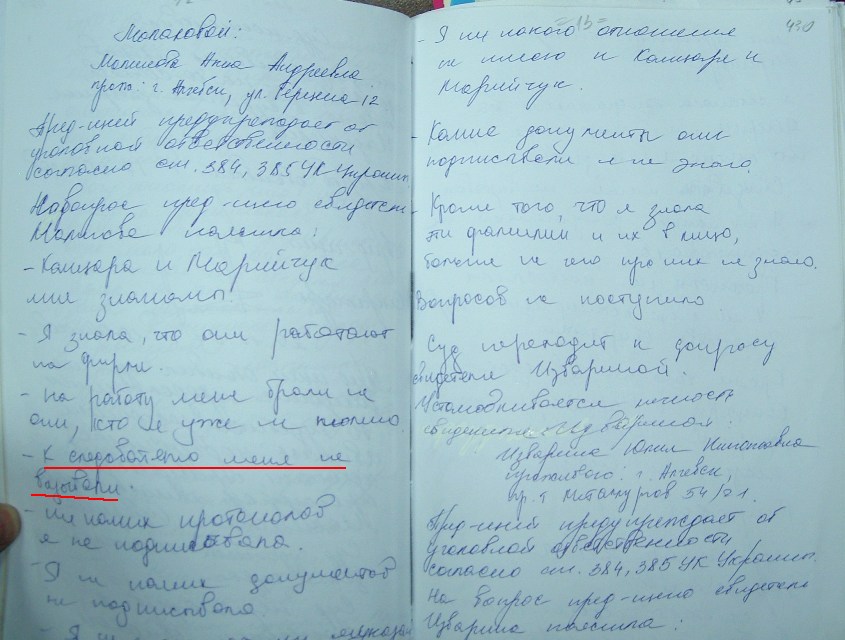 Малаховой:
Анна Андреевна
прож: г. Алчевск, ул. 12
Пред-щий предупреждает об
уголовной ответственности
согласно ст. 384, 385 УК Украины.
На вопрос пред-щего свидетель
пояснила:
- Канцара и Марийчук
мне знакомы.
- Я знала, что они работают
на фирме.
- на работу меня брали не
они, кто я уже не помню.
- К следователю меня не
вызывали.
- ни каких протоколов
я не подписывала.
- Я ни каких документов
не подписывала
- Я
= 13 =
430
- Я ни какого отношения
не имею к Канцаре и
Марийчук.
- Какие документы они
подписывали я не знаю.
- Кроме того, что я знала
их фамилии и их в лицо,
больше не чего про них не знаю.
Вопросов не поступило
Суд переходит к допросу
свидетеля Извариной.
Устанавливается личность
свидетеля Извариной:
Изварина Юлия Николаевна
г. Алчевск,
пр-т Металлургов 54/21.
Пред-щий предупреждает об
уголовной ответственности
согласно ст. 384, 385 УК Украины.
На вопрос пред-щего свидетель
Изварина пояснила: